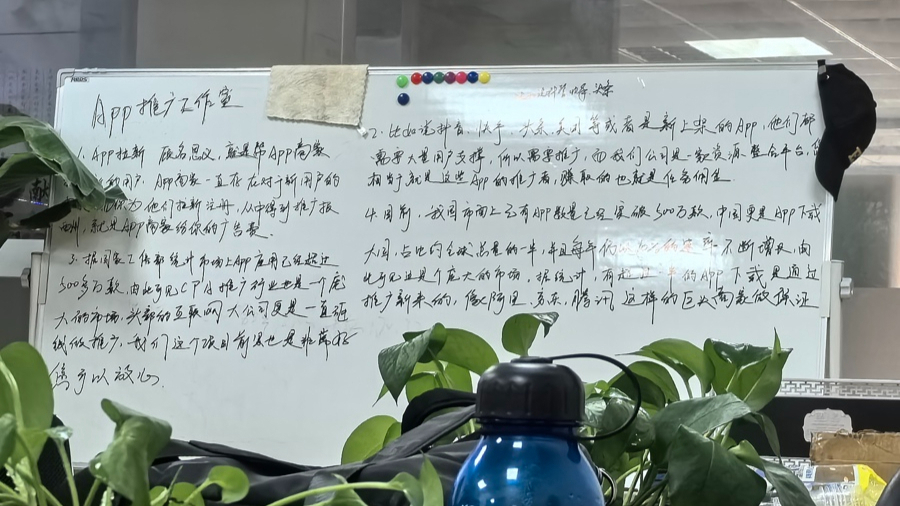 App推广工作室
1. App拉新 顾名思义, 就是帮App商家
的用户, App商家一直存在对于新用户的
为他们拉新注册, 从中得到推广报
酬, 就是App商家给你的广告费.
3. 据国家工信部统计市场上App应用已经超过
300多万款, 由此可见CPA推广行业也是一个庞
大的市场, 头部的互联网大公司更是一直砸
钱做推广, 我们这个项目前景也是非常好
您可以放心.
头条
2. 比如说抖音、快手、头条、美团等或者是新上架的App, 他们都
需要大量用户支撑, 所以需要推广, 而我们公司是一款资源整合平台,
相当于就是这些App的推广者, 赚取的也就是任务佣金.
4. 目前, 我国市面上已有App数量已经突破300万款, 中国更是App下载
大国, 占比约全球总量的一半, 并且每年 不断增长, 由
此可见这是个庞大的市场. 据统计, 有超过 的App下载是通过
推广新来的, 像阿里、京东、腾讯 这样的巨头商家做保证